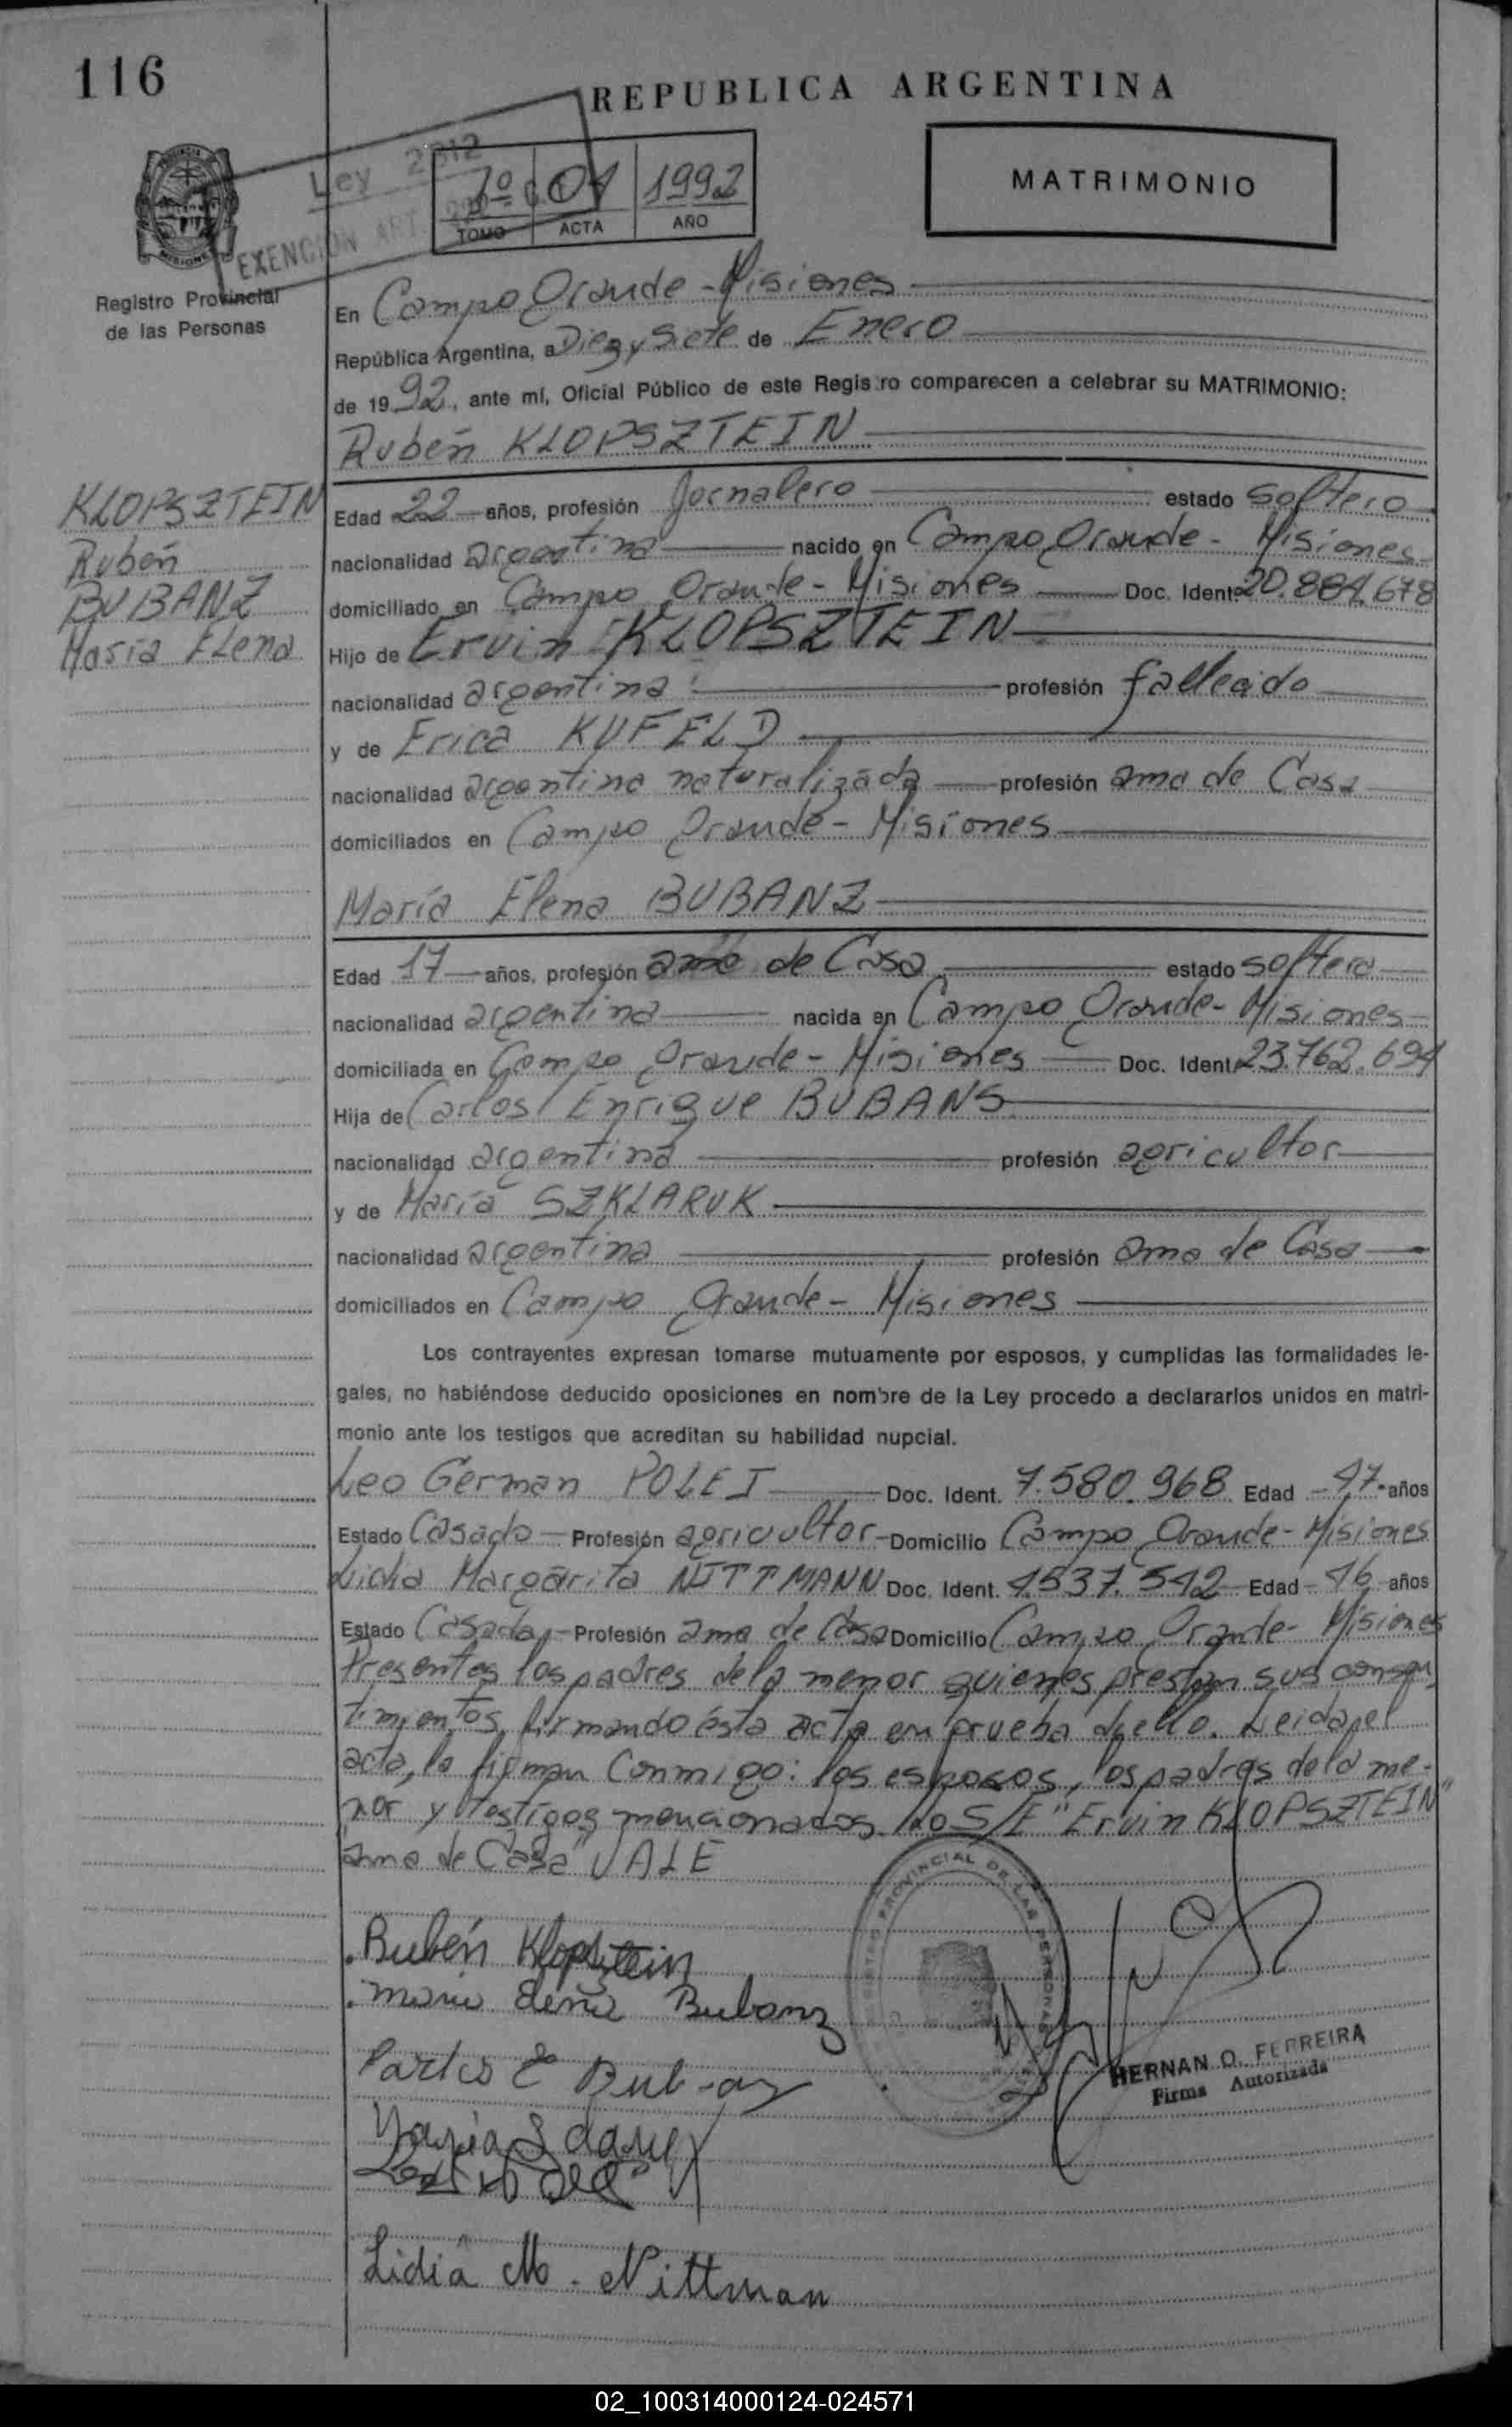 116
REPUBLICA ARGENTINA
Ley 2812
EXENCION ART.
1º 01 1992
TOMO ACTA AÑO
MATRIMONIO
PROVINCIA DE MISIONES
Registro Provincial
de las Personas
En Campo Grande - Misiones
República Argentina, a Diez y Siete de Enero
de 1992, ante mí, Oficial Público de este Registro comparecen a celebrar su MATRIMONIO:
Rubén KLOPSZTEIN
KLOPSZTEIN
Rubén
BUBANZ
María Elena
Edad 22 años, profesión Jornalero estado soltero
nacionalidad argentina nacido en Campo Grande - Misiones
domiciliado en Campo Grande - Misiones Doc. Ident. 20.884.678
Hijo de Ervin KLOPSZTEIN
nacionalidad argentina profesión fallecido
y de Erica KUFELD
nacionalidad argentina naturalizada profesión ama de Casa
domiciliados en Campo Grande - Misiones
María Elena BUBANZ
Edad 17 años, profesión ama de Casa estado soltera
nacionalidad argentina nacida en Campo Grande - Misiones
domiciliada en Campo Grande - Misiones Doc. Ident. 23.762.694
Hija de Carlos Enrique BUBANS
nacionalidad argentina profesión agricultor
y de María SZKLARUK
nacionalidad argentina profesión ama de Casa
domiciliados en Campo Grande - Misiones
Los contrayentes expresan tomarse mutuamente por esposos, y cumplidas las formalidades le-
gales, no habiéndose deducido oposiciones en nombre de la Ley procedo a declararlos unidos en matri-
monio ante los testigos que acreditan su habilidad nupcial.
Leo German POLEI Doc. Ident. 7.580.968 Edad 47 años
Estado Casado Profesión agricultor Domicilio Campo Grande - Misiones
Lidia Margarita NITTMANN Doc. Ident. 4.537.542 Edad 46 años
Estado Casada Profesión ama de Casa Domicilio Campo Grande - Misiones
Presentes los padres de la menor quienes prestan sus consen
timientos firmando ésta acta en prueba de ello. Leida el
acta, la firman Conmigo: los esposos, los padres de la me-
nor y testigos mencionados. S/E "Ervin KLOPSZTEIN"
"ama de Casa" VALE
REGISTRO PROVINCIAL DE LAS PERSONAS
Rubén Klopsztein
María Elena Bubanz
Carlos E Bubanz
HERNAN O. FERREIRA
Firma Autorizada
María
Lidia M. Nittman
02_100314000124-024571